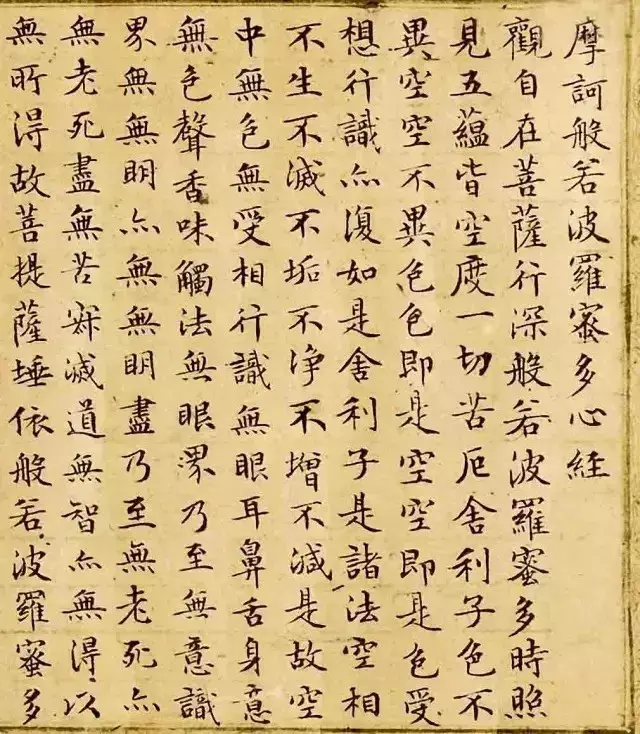 摩訶般若波羅蜜多心経
觀自在菩薩行深般若波羅蜜多時照
見五蘊皆空度一切苦厄舍利子色不
異空空不異色色即是空空即是色受
想行識亦復如是舍利子是諸法空相
不生不滅不垢不浄不增不減是故空
中無色無受相行識無眼耳鼻舌身意
無色聲香味觸法無眼界乃至無意識
界無無明亦無無明盡乃至無老死亦
無老死盡無苦寂滅道無智亦無得以
無所得故菩提薩埵依般若波羅蜜多